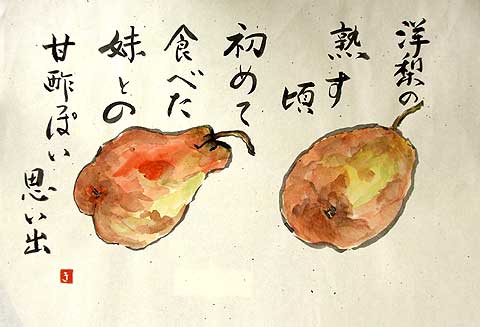 洋梨の
熟す
頃
初めて
食べた
妹との
甘酢ぽい
思い出
き